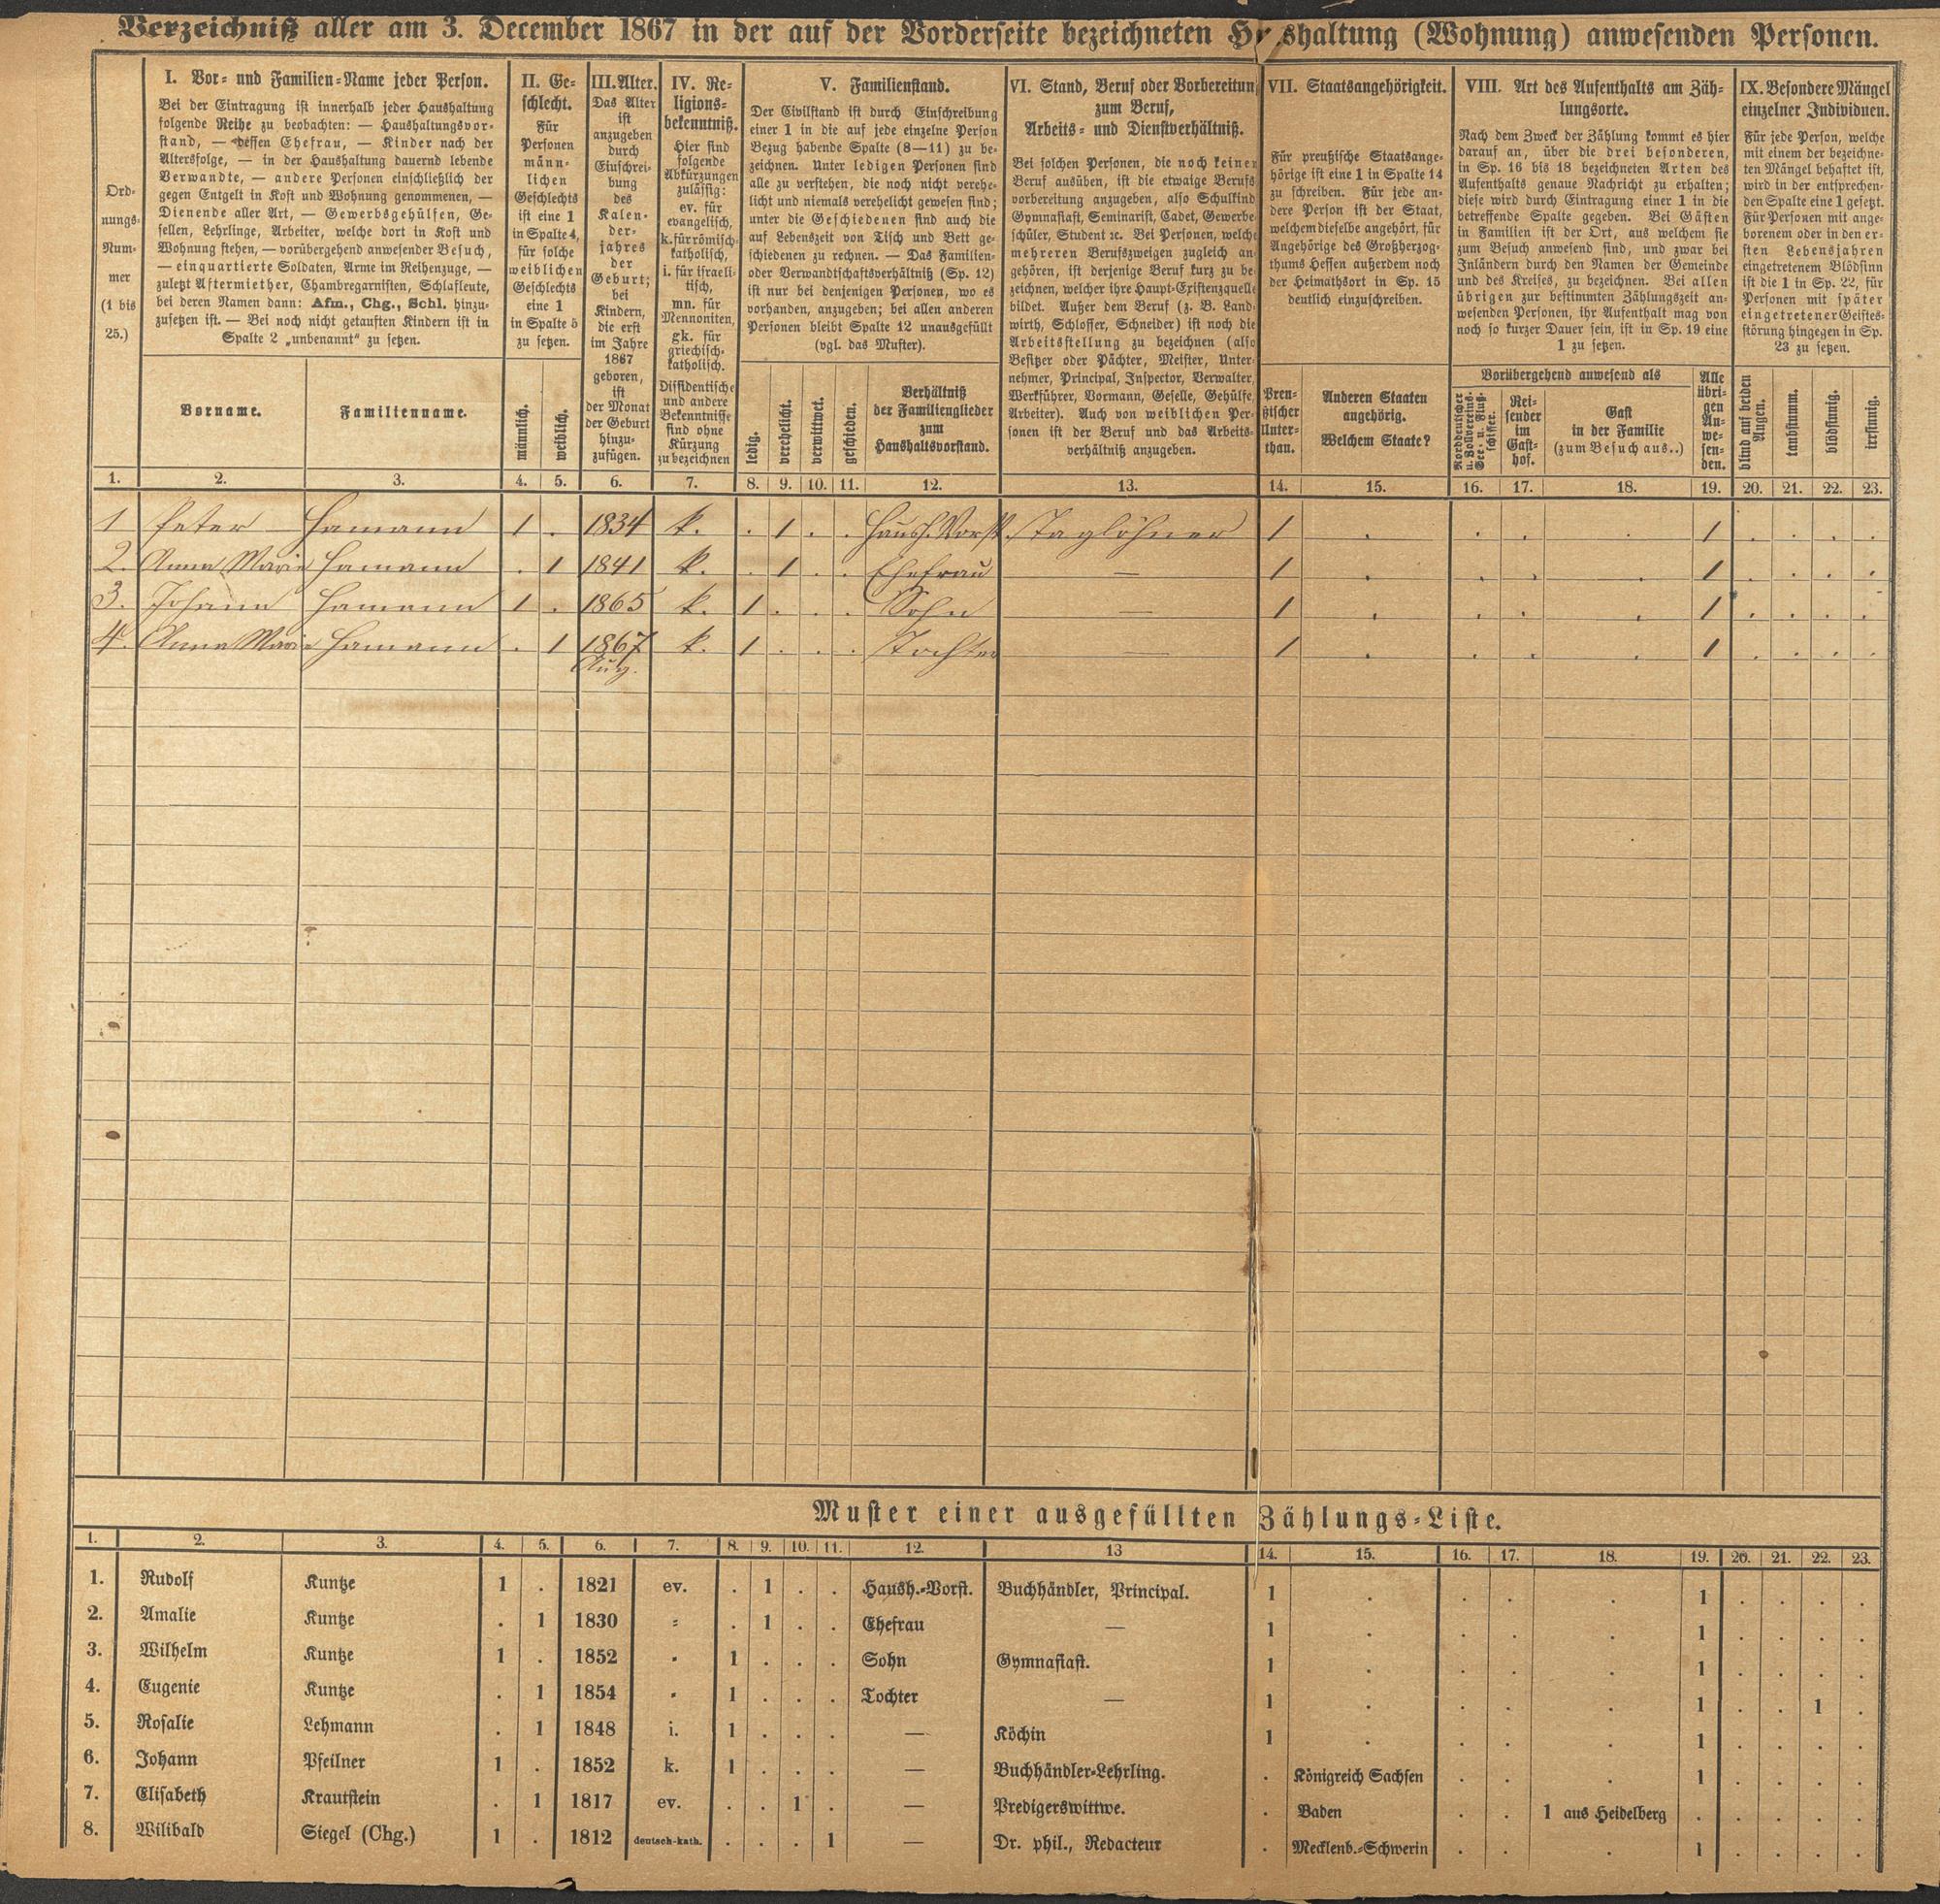 Verzeichniß aller am 3. December 1867 in der auf der Vorderseite bezeichneten Haushaltung (Wohnung) anwesenden Personen.
Ord-
nungs-
Num-
mer
(1 bis
25.)
I. Vor- und Familien-Name jeder Person.
Bei der Eintragung ist innerhalb jeder Haushaltung
folgende Reihe zu beobachten: — Haushaltungsvor-
stand, — dessen Ehefrau, — Kinder nach der
Altersfolge, — in der Haushaltung dauernd lebende
Verwandte, — andere Personen einschließlich der
gegen Entgelt in Kost und Wohnung genommenen, —
Dienende aller Art, — Gewerbsgehülfen, Ge-
sellen, Lehrlinge, Arbeiter, welche dort in Kost und
Wohnung stehen, — vorübergehend anwesender Besuch,
— einquartierte Soldaten, Arme im Reihenzuge, —
zuletzt Aftermiether, Chambregarnisten, Schlafleute,
bei deren Namen dann: Afm., Chg., Schl. hinzu-
zusetzen ist. — Bei noch nicht getauften Kindern ist in
Spalte 2 „unbenannt“ zu setzen.
Vorname.
Familienname.
II. Ge-
schlecht.
Für
Personen
männ-
lichen
Geschlechts
ist eine 1
in Spalte 4,
für solche
weiblichen
Geschlechts
eine 1
in Spalte 5
zu setzen.
männlich.
weiblich.
III. Alter.
Das Alter
ist
anzugeben
durch
Einschrei-
bung
des
Kalen-
der-
jahres
der
Geburt;
bei
Kindern,
die erst
im Jahre
1867
geboren,
ist
der Monat
der Geburt
hinzu-
zufügen.
IV. Re-
ligions-
bekenntniß.
Hier sind
folgende
Abkürzungen
zulässig:
ev. für
evangelisch,
k. für römisch-
katholisch,
i. für israeli-
tisch,
mn. für
Mennoniten,
gk. für
griechisch-
katholisch.
Dissidentische
und andere
Bekenntnisse
sind ohne
Kürzung
zu bezeichnen
V. Familienstand.
Der Civilstand ist durch Einschreibung
einer 1 in die auf jede einzelne Person
Bezug habende Spalte (8—11) zu be-
zeichnen. Unter ledigen Personen sind
alle zu verstehen, die noch nicht verehe-
licht und niemals verehelicht gewesen sind;
unter die Geschiedenen sind auch die
auf Lebenszeit von Tisch und Bett ge-
schiedenen zu rechnen. — Das Familien-
oder Verwandtschaftsverhältniß (Sp. 12)
ist nur bei denjenigen Personen, wo es
vorhanden, anzugeben; bei allen anderen
Personen bleibt Spalte 12 unausgefüllt
(vgl. das Muster).
ledig.
verehelicht.
verwittwet.
geschieden.
Verhältniß
der Familienglieder
zum
Haushaltsvorstand.
VI. Stand, Beruf oder Vorbereitung
zum Beruf,
Arbeits- und Dienstverhältniß.
Bei solchen Personen, die noch keinen
Beruf ausüben, ist die etwaige Berufs-
vorbereitung anzugeben, also Schulkind
Gymnasiast, Seminarist, Cadet, Gewerbe-
schüler, Student ꝛc. Bei Personen, welche
mehreren Berufszweigen zugleich an-
gehören, ist derjenige Beruf kurz zu be-
zeichnen, welcher ihre Haupt-Existenzquelle
bildet. Außer dem Beruf (z. B. Land-
wirth, Schlosser, Schneider) ist noch die
Arbeitsstellung zu bezeichnen (also
Besitzer oder Pächter, Meister, Unter-
nehmer, Principal, Inspector, Verwalter,
Werkführer, Vormann, Geselle, Gehülfe,
Arbeiter). Auch von weiblichen Per-
sonen ist der Beruf und das Arbeits-
verhältniß anzugeben.
VII. Staatsangehörigkeit.
Für preußische Staatsange-
hörige ist eine 1 in Spalte 14
zu schreiben. Für jede an-
dere Person ist der Staat,
welchem dieselbe angehört, für
Angehörige des Großherzog-
thums Hessen außerdem noch
der Heimathsort in Sp. 15
deutlich einzuschreiben.
Preu-
ßischer
Unter-
than.
Anderen Staaten
angehörig.
Welchem Staate?
VIII. Art des Aufenthalts am Zäh-
lungsorte.
Nach dem Zweck der Zählung kommt es hier
darauf an, über die drei besonderen,
in Sp. 16 bis 18 bezeichneten Arten des
Aufenthalts genaue Nachricht zu erhalten;
diese wird durch Eintragung einer 1 in die
betreffende Spalte gegeben. Bei Gästen
in Familien ist der Ort, aus welchem sie
zum Besuch anwesend sind, und zwar bei
Inländern durch den Namen der Gemeinde
und des Kreises, zu bezeichnen. Bei allen
übrigen zur bestimmten Zählungszeit an-
wesenden Personen, ihr Aufenthalt mag von
noch so kurzer Dauer sein, ist in Sp. 19 eine
1 zu setzen.
Vorübergehend anwesend als
Norddeutscher
u. Zollvereins-
See- u. Fluß-
schiffer.
Rei-
sender
im
Gast-
hof.
Gast
in der Familie
(zum Besuch aus..)
Alle
übri-
gen
An-
we-
sen-
den.
IX. Besondere Mängel
einzelner Individuen.
Für jede Person, welche
mit einem der bezeichne-
ten Mängel behaftet ist,
wird in der entsprechen-
den Spalte eine 1 gesetzt.
Für Personen mit ange-
borenem oder in den er-
sten Lebensjahren
eingetretenem Blödsinn
ist die 1 in Sp. 22, für
Personen mit später
eingetretener Geistes-
störung hingegen in Sp.
23 zu setzen.
blind auf beiden
Augen.
taubstumm.
blödsinnig.
irrsinnig.
1. 2. 3. 4. 5. 6. 7. 8. 9. 10. 11. 12. 13. 14. 15. 16. 17. 18. 19. 20. 21. 22. 23.
1 Peter Hamann 1 . 1834 k. . 1 . . Haush. Vorst. Taglöhner 1 . . . . 1 . . . .
2. Anna Marie Hamann . 1 1841 k. . 1 . . Ehefrau — 1 . . . . 1 . . . .
3. Johann Hamann 1 . 1865 k. 1 . . . Sohn — 1 . . . . 1 . . . .
4. Anna Marie Hamann . 1 1867 k. 1 . . . Tochter — 1 . . . . 1 . . . .
Aug.
Muster einer ausgefüllten Zählungs-Liste.
1. 2. 3. 4. 5. 6. 7. 8. 9. 10. 11. 12. 13 14. 15. 16. 17. 18. 19. 20. 21. 22. 23.
1. Rudolf Kuntze 1 . 1821 ev. . 1 . . Haush.-Vorst. Buchhändler, Principal. 1 . . . . 1 . . . .
2. Amalie Kuntze . 1 1830 = . 1 . . Ehefrau — 1 . . . . 1 . . . .
3. Wilhelm Kuntze 1 . 1852 " 1 . . . Sohn Gymnasiast. 1 . . . . 1 . . . .
4. Eugenie Kuntze . 1 1854 " 1 . . . Tochter — 1 . . . . 1 . . 1 .
5. Rosalie Lehmann . 1 1848 i. 1 . . . — Köchin 1 . . . . 1 . . . .
6. Johann Pfeilner 1 . 1852 k. 1 . . . — Buchhändler-Lehrling. . Königreich Sachsen . . . 1 . . . .
7. Elisabeth Krautstein . 1 1817 ev. . . 1 . — Predigerswittwe. . Baden . . 1 aus Heidelberg . . . . .
8. Wilibald Siegel (Chg.) 1 . 1812 deutsch-kath. . . . 1 — Dr. phil., Redacteur . Mecklenb.-Schwerin . . . 1 . . . .